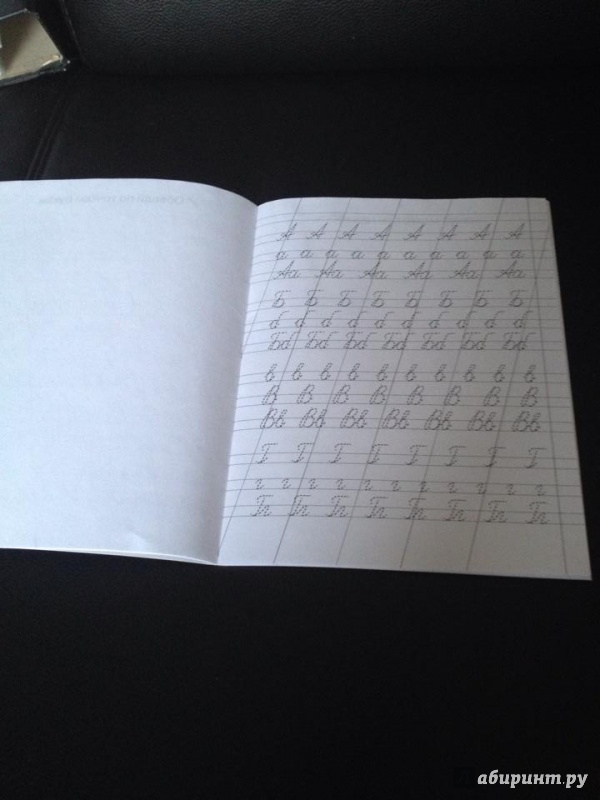 А А А А А А А А
а а а а а а а а а а
Аа Аа Аа Аа Аа Аа
Б Б Б Б Б Б Б Б
б б б б б б б б б б
Бб Бб Бб Бб Бб Бб Бб
в в в в в в в в в в
В В В В В В В В
Вв Вв Вв Вв Вв Вв Вв
Г Г Г Г Г Г Г Г
г г г г г г г г г г г
Гг Гг Гг Гг Гг Гг Гг Гг
абиринт.ру